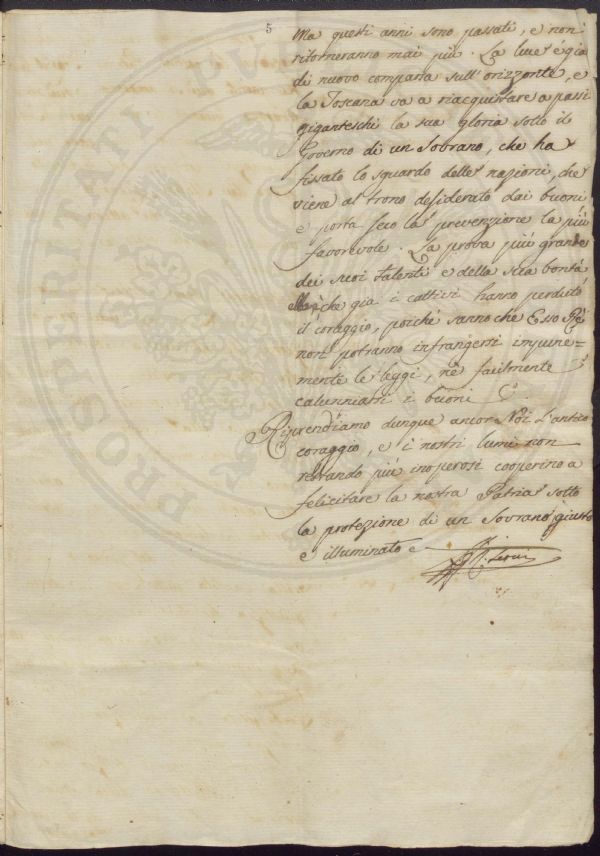 5
Ma questi anni sono passati, e non
ritorneranno mai più. La luce è gia
di nuovo comparsa sull'orizzonte, e
la Toscana va a riacquistare a passi
giganteschi la sua gloria sotto il
Governo di un Sovrano, che ha
fissato lo sguardo delle nazioni, che
viene al trono desiderato dai buoni
e porta seco la prevenzione la più
favorevole. La prova più grande
dei suoi talenti e della sua bontà
è che gia i cattivi hanno perduto
il coraggio, poichè sanno che Esso Rè
non potranno infrangersi impune=
mente le leggi, nè facilmente
calunniarsi i buoni.
Riprendiamo dunque ancor Noi l'antico
coraggio, e i nostri lumi non
restando più inoperosi cooperino a
felicitare la nostra Patria sotto
la protezione di un Sovrano giusto
e illuminato
PROSPERITATI PVB